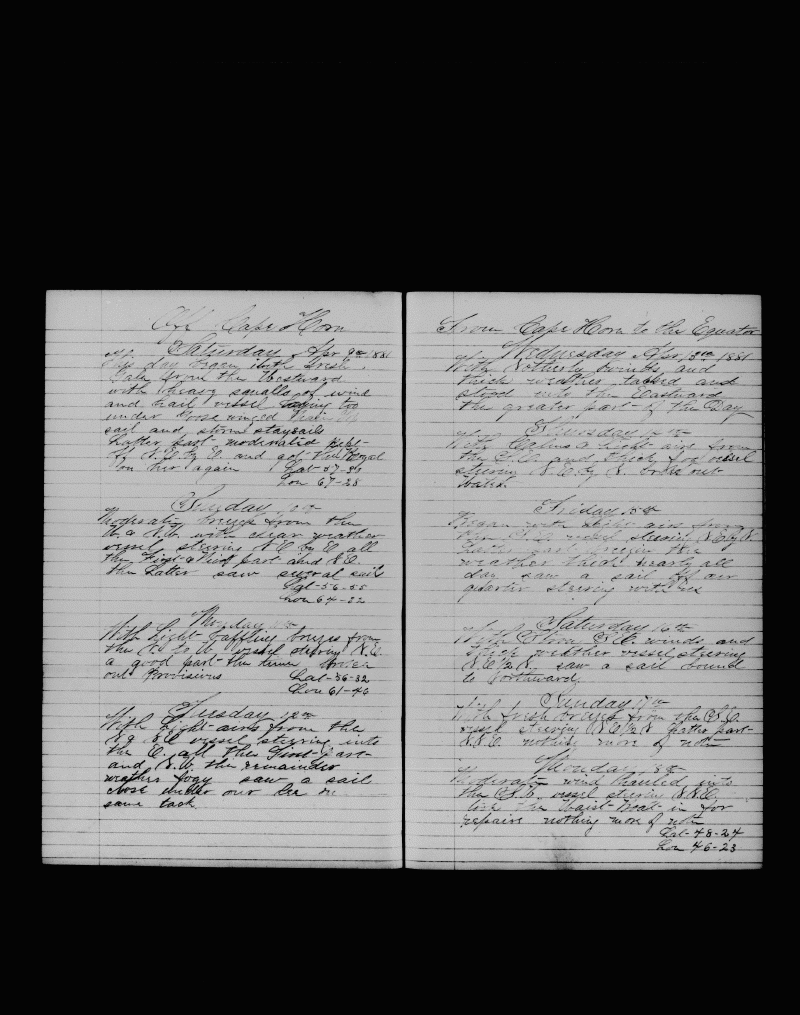 Off Cape Horn
Saturday Apr 9th 1881
This day began with fresh
Gale from the Westward
with heavy squalls of wind
and hail vessel laying too
under Goose winged Main Top
sail and storm staysails
Latter part moderated kept
off N.E. by E. and got the Royal
on her again Lat-57-34
Lon 67-28
Sunday 10th
Moderate breezes from the
W. & N.W. with clear weather
vessel steering N.E. by E. all
the First part and N.E.
the Latter saw several sail
Lat-56-55
Lon 64-22
Monday 11th
With Light baffling breezes from
the N. to W. vessel steering N.E.
a good part the time broke
out Provisions Lat-56-32
Lon 61-40
Tuesday 12th
With Light airs from the
vessel steering into
the E. all the First part
and N.W. the remainder
weather fogy saw a sail
close under our lee on
same tack
From Cape Horn to the Equator
Wednesday Apr, 13th 1881
With Notherly winds, and
thick weather tacked and
stood into the Eastward
the greater part of the Day
Thursday 14th
With Calms & light airs from
the and thick fog vessel
steering N.E. by N. broke out
bread
Friday 15th
Began with light airs from
the vessel steering N.E by N.
Latter part breezes the
weather thick nearly all
day saw a sail off our
quarter steering with us
Saturday 16th
With winds and
thick weather vessel steering
N.E. 1/2 N. saw a sail bound
to Northward,
Sunday 17th
With fresh breezes from the
vessel steering N.E. 1/2 N. Latter part
N.N.E. nothing more of note
Monday 18th
Moderate wind hauled into
the vessel steering N.N.E.
took the Waist Boat in for
repairs nothing more of note
Lat-48-24
Lon 46-23